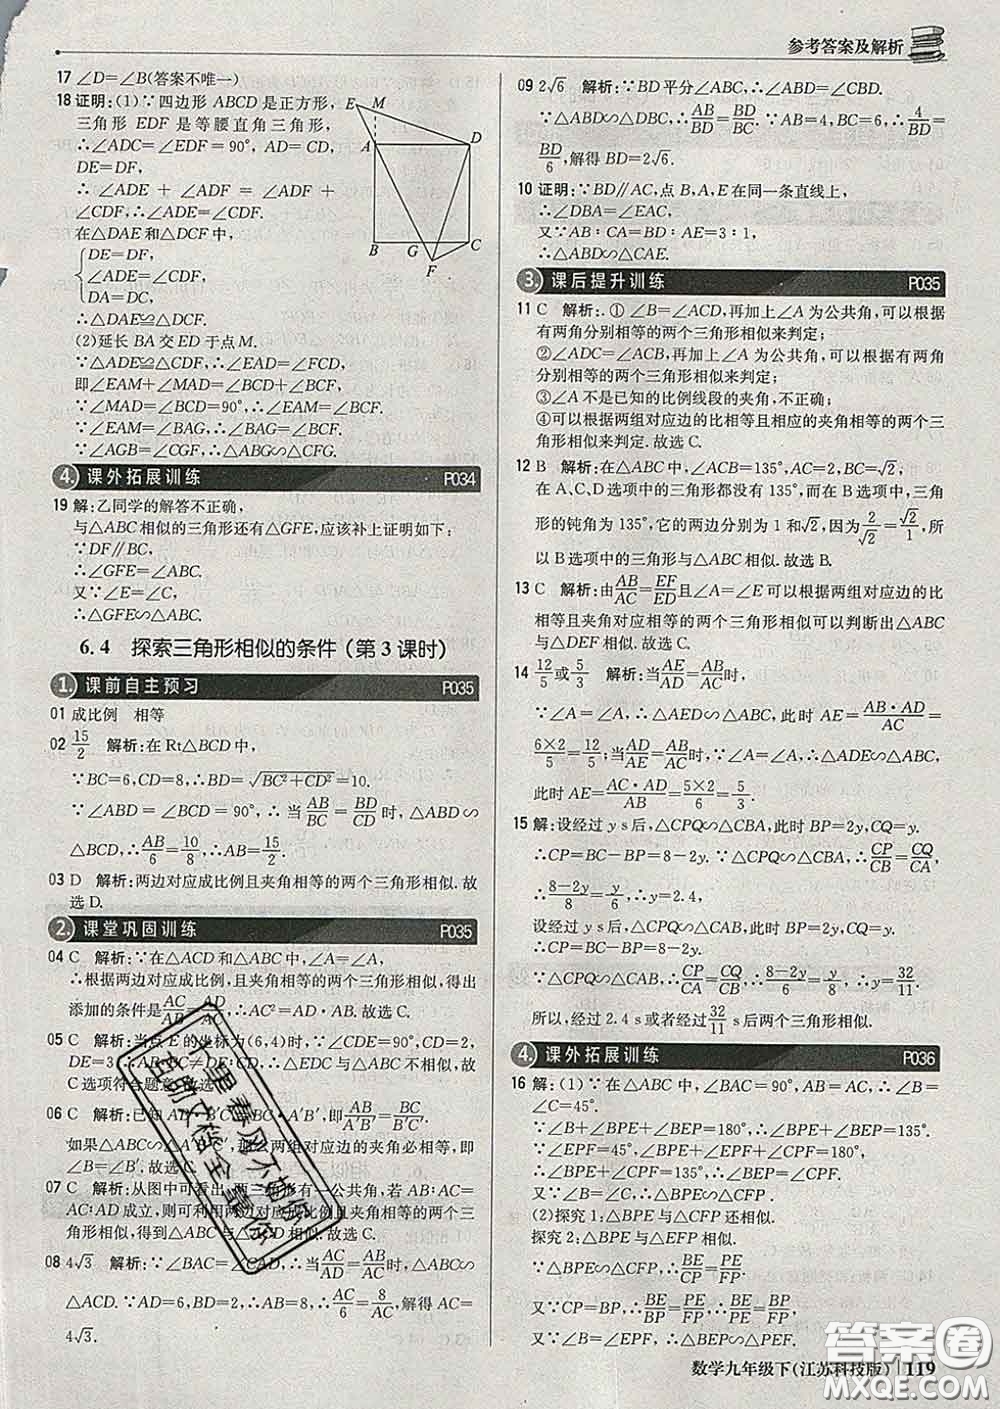 参考答案及解析
17 ∠D=∠B(答案不唯一)
18 证明:(1)∵四边形 ABCD 是正方形,
三角形 EDF 是等腰直角三角形,
∴∠ADC=∠EDF=90°,AD=CD,
DE=DF.
∴ ∠ADE + ∠ADF = ∠ADF +
∠CDF.∴∠ADE=∠CDF.
在△DAE和△DCF中,
DE=DF,
∠ADE=∠CDF,
DA=DC,
∴△DAE≌△DCF.
(2)延长 BA 交 ED 于点 M.
∵△ADE≌△CDF,∴∠EAD=∠FCD,
即∠EAM+∠MAD=∠BCD+∠BCF.
∵∠MAD=∠BCD=90°,∴∠EAM=∠BCF.
∵∠EAM=∠BAG,∴∠BAG=∠BCF.
∵∠AGB=∠CGF,∴△ABG∽△CFG.
E M A D B G C F
4. 课外拓展训练 P034
19 解:乙同学的解答不正确,
与△ABC相似的三角形还有△GFE,应该补上证明如下:
∵DF∥BC,
∴∠GFE=∠ABC.
又∵∠E=∠C,
∴△GFE∽△ABC.
6.4 探索三角形相似的条件(第3课时)
1. 课前自主预习 P035
01 成比例 相等
02 15/2 解析:在Rt△BCD中,
∵BC=6,CD=8,∴BD=√(BC²+CD²)=10.
∵∠ABD=∠BCD=90°,∴当AB/BC=BD/CD时,△ABD∽
△BCD,∴AB/6=10/8,∴AB=15/2.
03 D 解析:两边对应成比例且夹角相等的两个三角形相似.故
选D.
2. 课堂巩固训练 P035
04 C 解析:∵在△ACD和△ABC中,∠A=∠A,
∴根据两边对应成比例,且夹角相等的两个三角形相似,得出
添加的条件是AC/AB=AD/AC,∴AC²=AD·AB.故选C.
05 C 解析:当点E的坐标为(6,4)时,∵∠CDE=90°,CD=2,
DE=3,∴AB/BC≠DE/CD,∴△EDC与△ABC不相似,故
C选项符合题意.故选C.
06 C 解析:已知AB:BC=A′B′:B′C′,即AB/A′B′=BC/B′C′,
如果△ABC∽△A′B′C′,那么两组对应边的夹角必相等,即
∠B=∠B′.故选C.
07 C 解析:从图中可看出,两三角形有一公共角,若AB:AC=
AC:AD成立,则可利用两边对应成比例且夹角相等的两个三
角形相似,得到△ABC与△ACD相似.故选C.
08 4√3 解析:∵∠BAC=∠CAD,∴当AD/AC=AC/AB时,△ABC∽
△ACD.∵AD=6,AB=8,∴AC/6=8/AC,解得 AC=
4√3.
09 2√6 解析:∵BD平分∠ABC,∴∠ABD=∠CBD.
∵△ABD∽△DBC,∴AB/BD=BD/BC.∵AB=4,BC=6,∴4/BD=
BD/6,解得BD=2√6.
10 证明:∵BD∥AC,点B、A、E在同一条直线上,
∴∠DBA=∠EAC,
又∵AB:CA=BD:AE=3:1,
∴△ABD∽△CAE.
3. 课后提升训练 P035
11 C 解析:①∠B=∠ACD,再加上∠A为公共角,可以根据
有两角分别相等的两个三角形相似来判定;
②∠ADC=∠ACB,再加上∠A为公共角,可以根据有两角
分别相等的两个三角形相似来判定;
③∠A不是已知的比例线段的夹角,不正确;
④可以根据两组对应边的比相等且相应的夹角相等的两个三
角形相似来判定.故选C.
12 B 解析:在△ABC中,∠ACB=135°,AC=2,BC=√2,
在A、C、D选项中的三角形都没有135°,而在B选项中,三角
形的钝角为135°,它的两边分别为1和√2,因为2/√2=√2/1,所
以B选项中的三角形与△ABC相似.故选B.
13 C 解析:由AB/AC=EF/ED且∠A=∠E可以根据两组对应边的比
相等且夹角对应相等的两个三角形相似可以判断出△ABC
与△DEF相似.故选C.
14 12/5或5/3 解析:当AE/AD=AB/AC时,
∵∠A=∠A,∴△AED∽△ABC,此时 AE=AB·AD/AC=
6×2/5=12/5;当AD/AE=AB/AC时,∵∠A=∠A,∴△ADE∽△ABC,
此时AE=AC·AD/AB=5×2/6=5/3.
15 解:设经过y s后,△CPQ∽△CBA,此时BP=2y,CQ=y.
∴CP=BC-BP=8-2y.∵△CPQ∽△CBA,∴CP/CB=CQ/CA,
∴8-2y/8=y/6,∴y=2.4,
设经过y s后,△CPQ∽△CAB,此时BP=2y,CQ=y.
∴CP=BC-BP=8-2y.
∵△CPQ∽△CAB,∴CP/CA=CQ/CB,∴8-2y/6=y/8,∴y=32/11.
所以,经过2.4 s或者经过32/11 s后两个三角形相似.
4. 课外拓展训练 P036
16 解:(1)∵在△ABC中,∠BAC=90°,AB=AC,∴∠B=
∠C=45°.
∵∠B+∠BPE+∠BEP=180°,∴∠BPE+∠BEP=135°.
∵∠EPF=45°,∠BPE+∠EPF+∠CPF=180°,
∴∠BPE+∠CPF=135°,∴∠BEP=∠CPF.
又∵∠B=∠C,∴△BPE∽△CFP.
(2)探究1:△BPE与△CFP还相似.
探究2:△BPE与△EFP相似.
∵△BPE∽△CFP,∴BE/CP=PE/FP.
又∵CP=BP,∴BE/BP=PE/FP,∴BE/PE=BP/FP.
又∵∠B=∠EPF,∴△BPE∽△PEF.
数学九年级下(江苏科技版) 119
答案圈
MXQE.COM